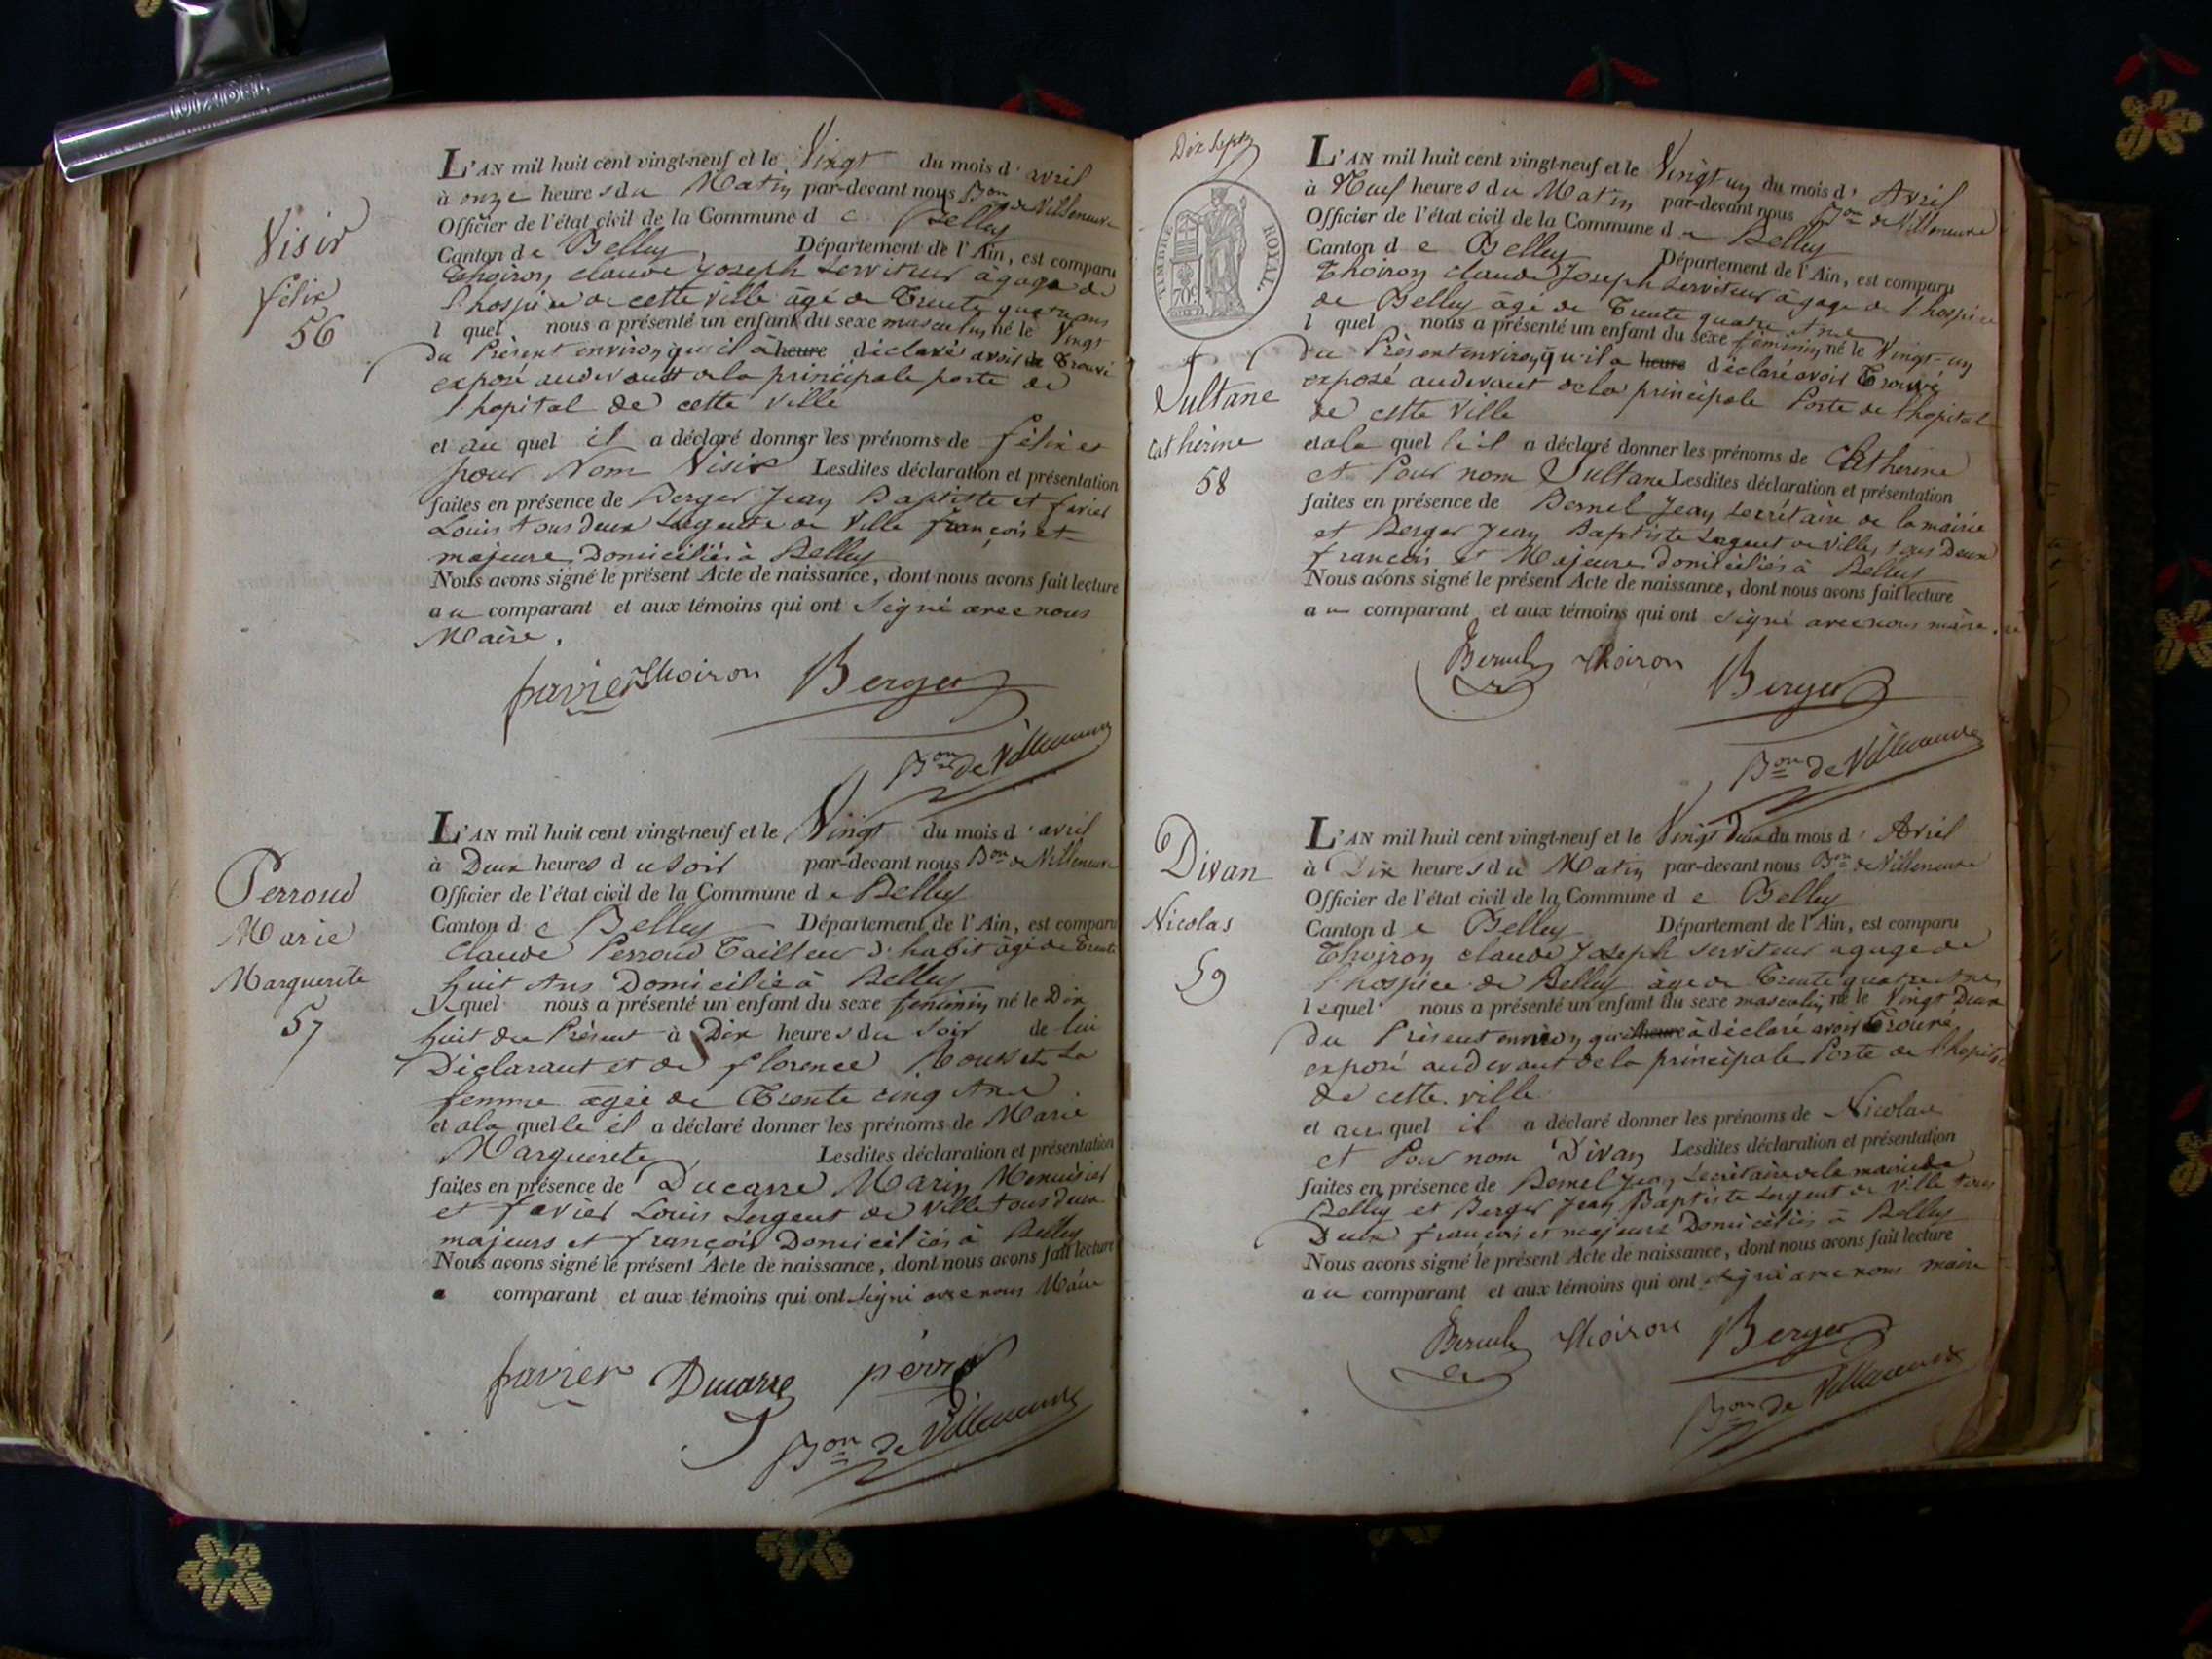 Visir
félix
56
L'AN mil huit cent vingt-neuf et le Vingt du mois d'avril
à onze heures du Matin par-devant nous Bon de Villeneuve
Officier de l'état civil de la Commune de Belley
Canton de Belley, Département de l'Ain, est comparu
Thoiron claude Joseph Serviteur à gage de
l'hospice de cette Ville âgé de Trente quatre ans
lequel nous a présenté un enfant du sexe masculin né le Vingt
du Présent environ qu'il a heure déclaré avoir de Trouvé
exposé audevant de la principale porte de
l'hopital de cette Ville
et au quel il a déclaré donner les prénoms de félix et
pour Nom Visir Lesdites déclaration et présentation
faites en présence de Berger Jean Baptiste et favier
Louis tous deux Sergents de Ville françois et
majeurs Domiciliés à Belley
Nous avons signé le présent Acte de naissance, dont nous avons fait lecture
au comparant et aux témoins qui ont Signé avec nous
Maire.
favier Thoiron Berger
Bon de Villeneuve
Perroud
Marie
Marguerite
57
L'AN mil huit cent vingt-neuf et le Vingt du mois d'avril
à Deux heures du soir par-devant nous Bon de Villeneuve
Officier de l'état civil de la Commune de Belley
Canton de Belley Département de l'Ain, est comparu
Claude Perroud Tailleur d'habit âgé de Trente
huit Ans Domicilié à Belley
lequel nous a présenté un enfant du sexe féminin né le Dix
huit du Présent à Dix heures du Soir de lui
Déclarant et de florence Rousset Sa
femme agée de Trente cinq Ans
et ala quelle il a déclaré donner les prénoms de Marie
Marguerite, Lesdites déclaration et présentation
faites en présence de Ducarre Marin Menuisier
et favier Louis Sergent de Ville tous deux
majeurs et françois Domiciliés à Belley
Nous avons signé le présent Acte de naissance, dont nous avons fait lecture
a comparant et aux témoins qui ont signé avec nous Maire
favier Ducarre perro
Bon de Villeneuve
Dix Sept
TIMBRE ROYAL.
70c
Sultane
Catherine
58
L'AN mil huit cent vingt-neuf et le Vingt-un du mois d'Avril
à Neuf heures du Matin par-devant nous Bon de Villeneuve
Officier de l'état civil de la Commune de Belley
Canton de Belley Département de l'Ain, est comparu
Thoiron claude Joseph Serviteur à gage de l'hospice
de Belley âgé de Trente quatre Ans
lequel nous a présenté un enfant du sexe féminin né le Vingt-un
du Présent environ qu'il a heure déclaré avoir Trouvé
exposé audevant de la principale Porte de l'hopital
de cette Ville
et ala quelle il a déclaré donner les prénoms de Catherine
et Pour nom Sultane Lesdites déclaration et présentation
faites en présence de Bernel Jean Secrétaire de la mairie
et Berger Jean Baptiste Sergent de Ville, tous Deux
françois et Majeurs domiciliés à Belley
Nous avons signé le présent Acte de naissance, dont nous avons fait lecture
au comparant et aux témoins qui ont signé avec nous maire.
Bernel Thoiron Berger
Bon de Villeneuve
Divan
Nicolas
59
L'AN mil huit cent vingt-neuf et le Vingt Deux du mois d'Avril
à Dix heures du Matin par-devant nous Bon de Villeneuve
Officier de l'état civil de la Commune de Belley
Canton de Belley Département de l'Ain, est comparu
Thoiron claude Joseph serviteur a gage de
l'hospice de Belley âgé de Trente quatre Ans
lequel nous a présenté un enfant du sexe masculin né le Vingt Deux
du Présent environ qu'il heure à déclaré avoir Trouvé
exposé audevant de la principale Porte de l'hopital
de cette ville
et au quel il a déclaré donner les prénoms de Nicolas
et Pour nom Divan Lesdites déclaration et présentation
faites en présence de Bernel Jean Secrétaire de la mairie de
Belley et Berger Jean Baptiste Sergent de Ville tous
Deux françois et majeurs Domiciliés à Belley
Nous avons signé le présent Acte de naissance, dont nous avons fait lecture
au comparant et aux témoins qui ont signé avec nous maire
Bernel Thoiron Berger
Bon de Villeneuve